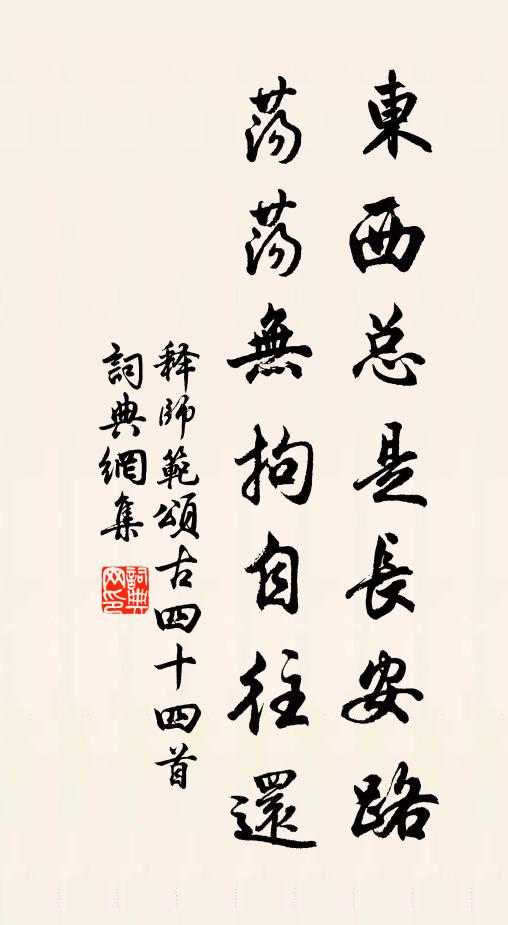 東西总是長安路
蕩蕩無拘自往還
释師範頌古四十四首
詞典網集
詞典網印